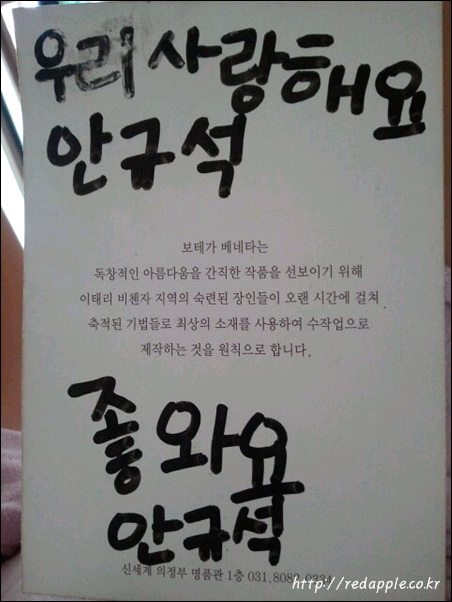 우리 사랑해요
안규석
보테가 베네타는
독창적인 아름다움을 간직한 작품을 선보이기 위해
이태리 비첸자 지역의 숙련된 장인들이 오랜 시간에 걸쳐
축적된 기법들로 최상의 소재를 사용하여 수작업으로
제작하는 것을 원칙으로 합니다.
좋와요
안규석
신세계 의정부 명품관 1층
http://redapple.co.kr